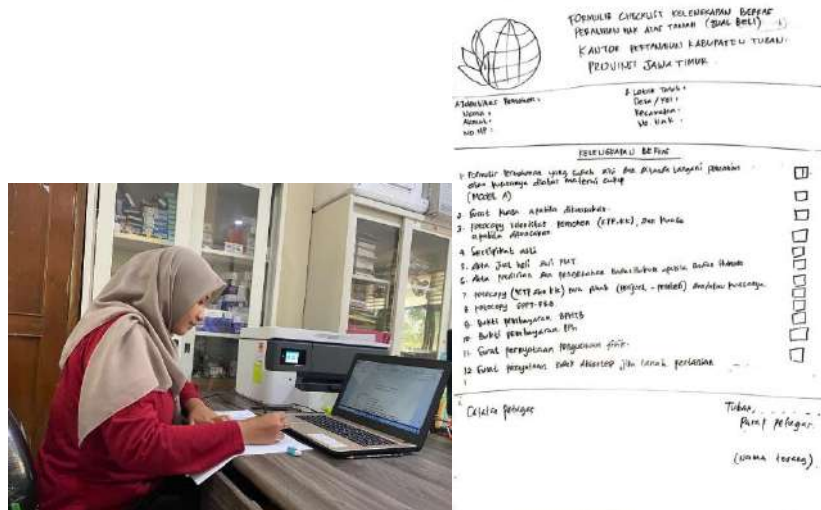 FORMULIR CHECKLIST KELENGKAPAN BERKAS
PERALIHAN HAK ATAS TANAH (JUAL BELI)
KANTOR PERTANAHAN KABUPATEN TUBAN
PROVINSI JAWA TIMUR
Nama :
Alamat :
NO. HP :
Desa / Kel :
Kecamatan :
No. Hak :
KELENGKAPAN BERKAS
1. Formulir Permohonan yang sudah diisi dan ditanda tangani pemohon
atau kuasanya diatas materai cukup
(MODEL A)
2. Surat kuasa apabila dikuasakan
3. fotocopy identitas pemohon (KTP, KK), dan kuasa
apabila dikuasakan
4. Sertipikat asli
5. Akta Jual beli dari PPAT
6. Akta pendirian dan pengesahan Badan Hukum apabila Badan Hukum
7. fotocopy (KTP dan KK) para pihak (penjual - pembeli) dan/atau kuasanya
8. fotocopy SPPT-PBB
9. Bukti pembayaran BPHTB
10. Bukti pembayaran PPh
11. Surat pernyataan penguasaan fisik
12. Surat pernyataan jika tanah pertanian
Catatan petugas
Tuban,
Paraf petugas
(Nama terang)